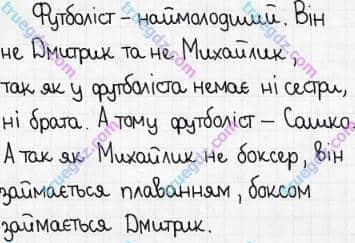 Футболіст – наймолодший. Він
не Дмитрик та не Михайлик
так як у футболіста немає ні сестри,
ні брата. А тому футболіст – Сашко.
А так як Михайлик не боксер, він
займається плаванням, боксом
займається Дмитрик.